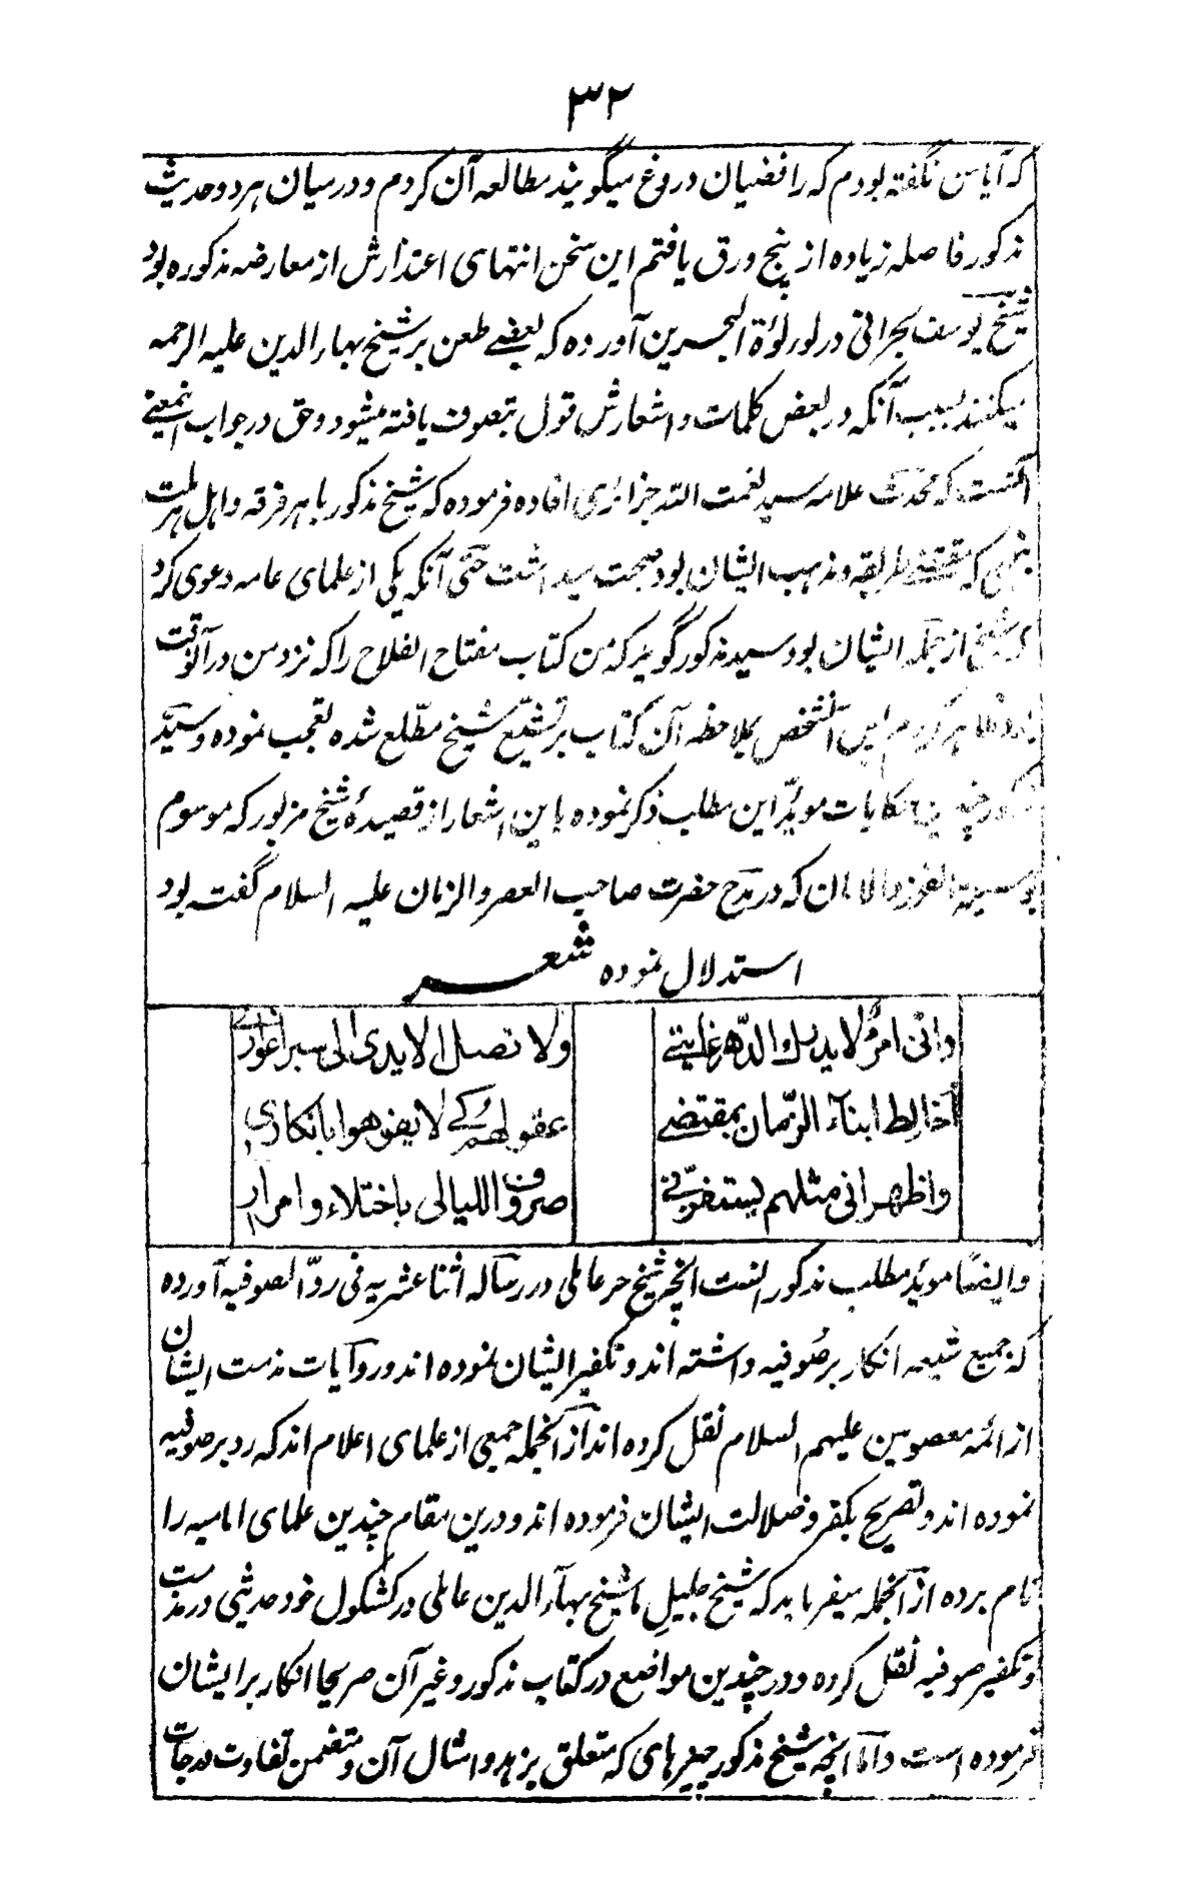 ۳۲
که آیا من نگفته بودم که رافضیان دروغ میگویند مطالعه آن کردم و در میان هر دو حدیث
مذکور فاصله زیاده از پنج ورق یافتم این سخن انتهای اعتذارش از معارضه مذکوره بود
شیخ یوسف بحرانی در لؤلؤة البحرین آورده که بعضے طعن بر شیخ بهاء الدین علیه الرحمه
میکنند بسبب آنکه در بعض کلمات و اشعارش قول بتصوف یافته میشود و حق در جواب اینمعنے
آنست که محدث علامه سید نعمت الله جزائری افاده فرموده که شیخ مذکور با هر فرقه و اهل هر ملت
بنهجی که مقتضاے طریقه و مذهب ایشان بود صحبت میداشت حتی آنکه یکی از علمای عامه دعوی کرد
که شیخ از جمله ایشان بود سید مذکور گوید که من کتاب مفتاح الفلاح را که نزد من در آنوقت
بود ظاهر کردم پس آنشخص بملاحظه آن کتاب بر تشیّع شیخ مطّلع شده تعجب نموده و سیّد
مذکور چندین حکایات مویّد این مطلب ذکر نموده باین اشعار از قصیدهٔ شیخ مزبور که موسوم
بوسیلة الفوز والامان که در مدح حضرت صاحب العصر والزمان علیه السلام گفته بود
استدلال نموده شعر
وانی امرؤ لا یدرك الدّهر غایتے ولا تصل الایدی الی سبر اغواری
اخالط ابناء الزّمان بمقتضے عقولهم کے لا یفوهوا بانکاری
واظهر انی مثلهم یستفزّنی صروف اللیالی باختلاء وامرار
وایضًا موید مطلب مذکور است انچه شیخ حر عاملی در رساله اثنا عشریه فی ردّ الصوفیه آورده
که جمیع شیعه انکار بر صوفیه داشته اند و تکفیر ایشان نموده اند و روایات مذمت ایشان
از ائمه معصومین علیهم السلام نقل کرده اند از آنجمله جمیعی از علمای اعلام اند که رد بر صوفیه
نموده اند و تصریح بکفر و ضلالت ایشان فرموده اند و درین مقام چندین علمای امامیه را
نام برده از آنجمله میفرماید که شیخ جلیل ما شیخ بهآء الدین عاملی در کشکول خود حدیثی در مذمت
و تکفیر صوفیه نقل کرده و در چندین مواضع در کتاب مذکور و غیر آن صریحا انکار بر ایشان
فرموده است و اما انچه شیخ مذکور چیزهای که متعلق بزهد و امثال آن و متضمن تفاوت درجات